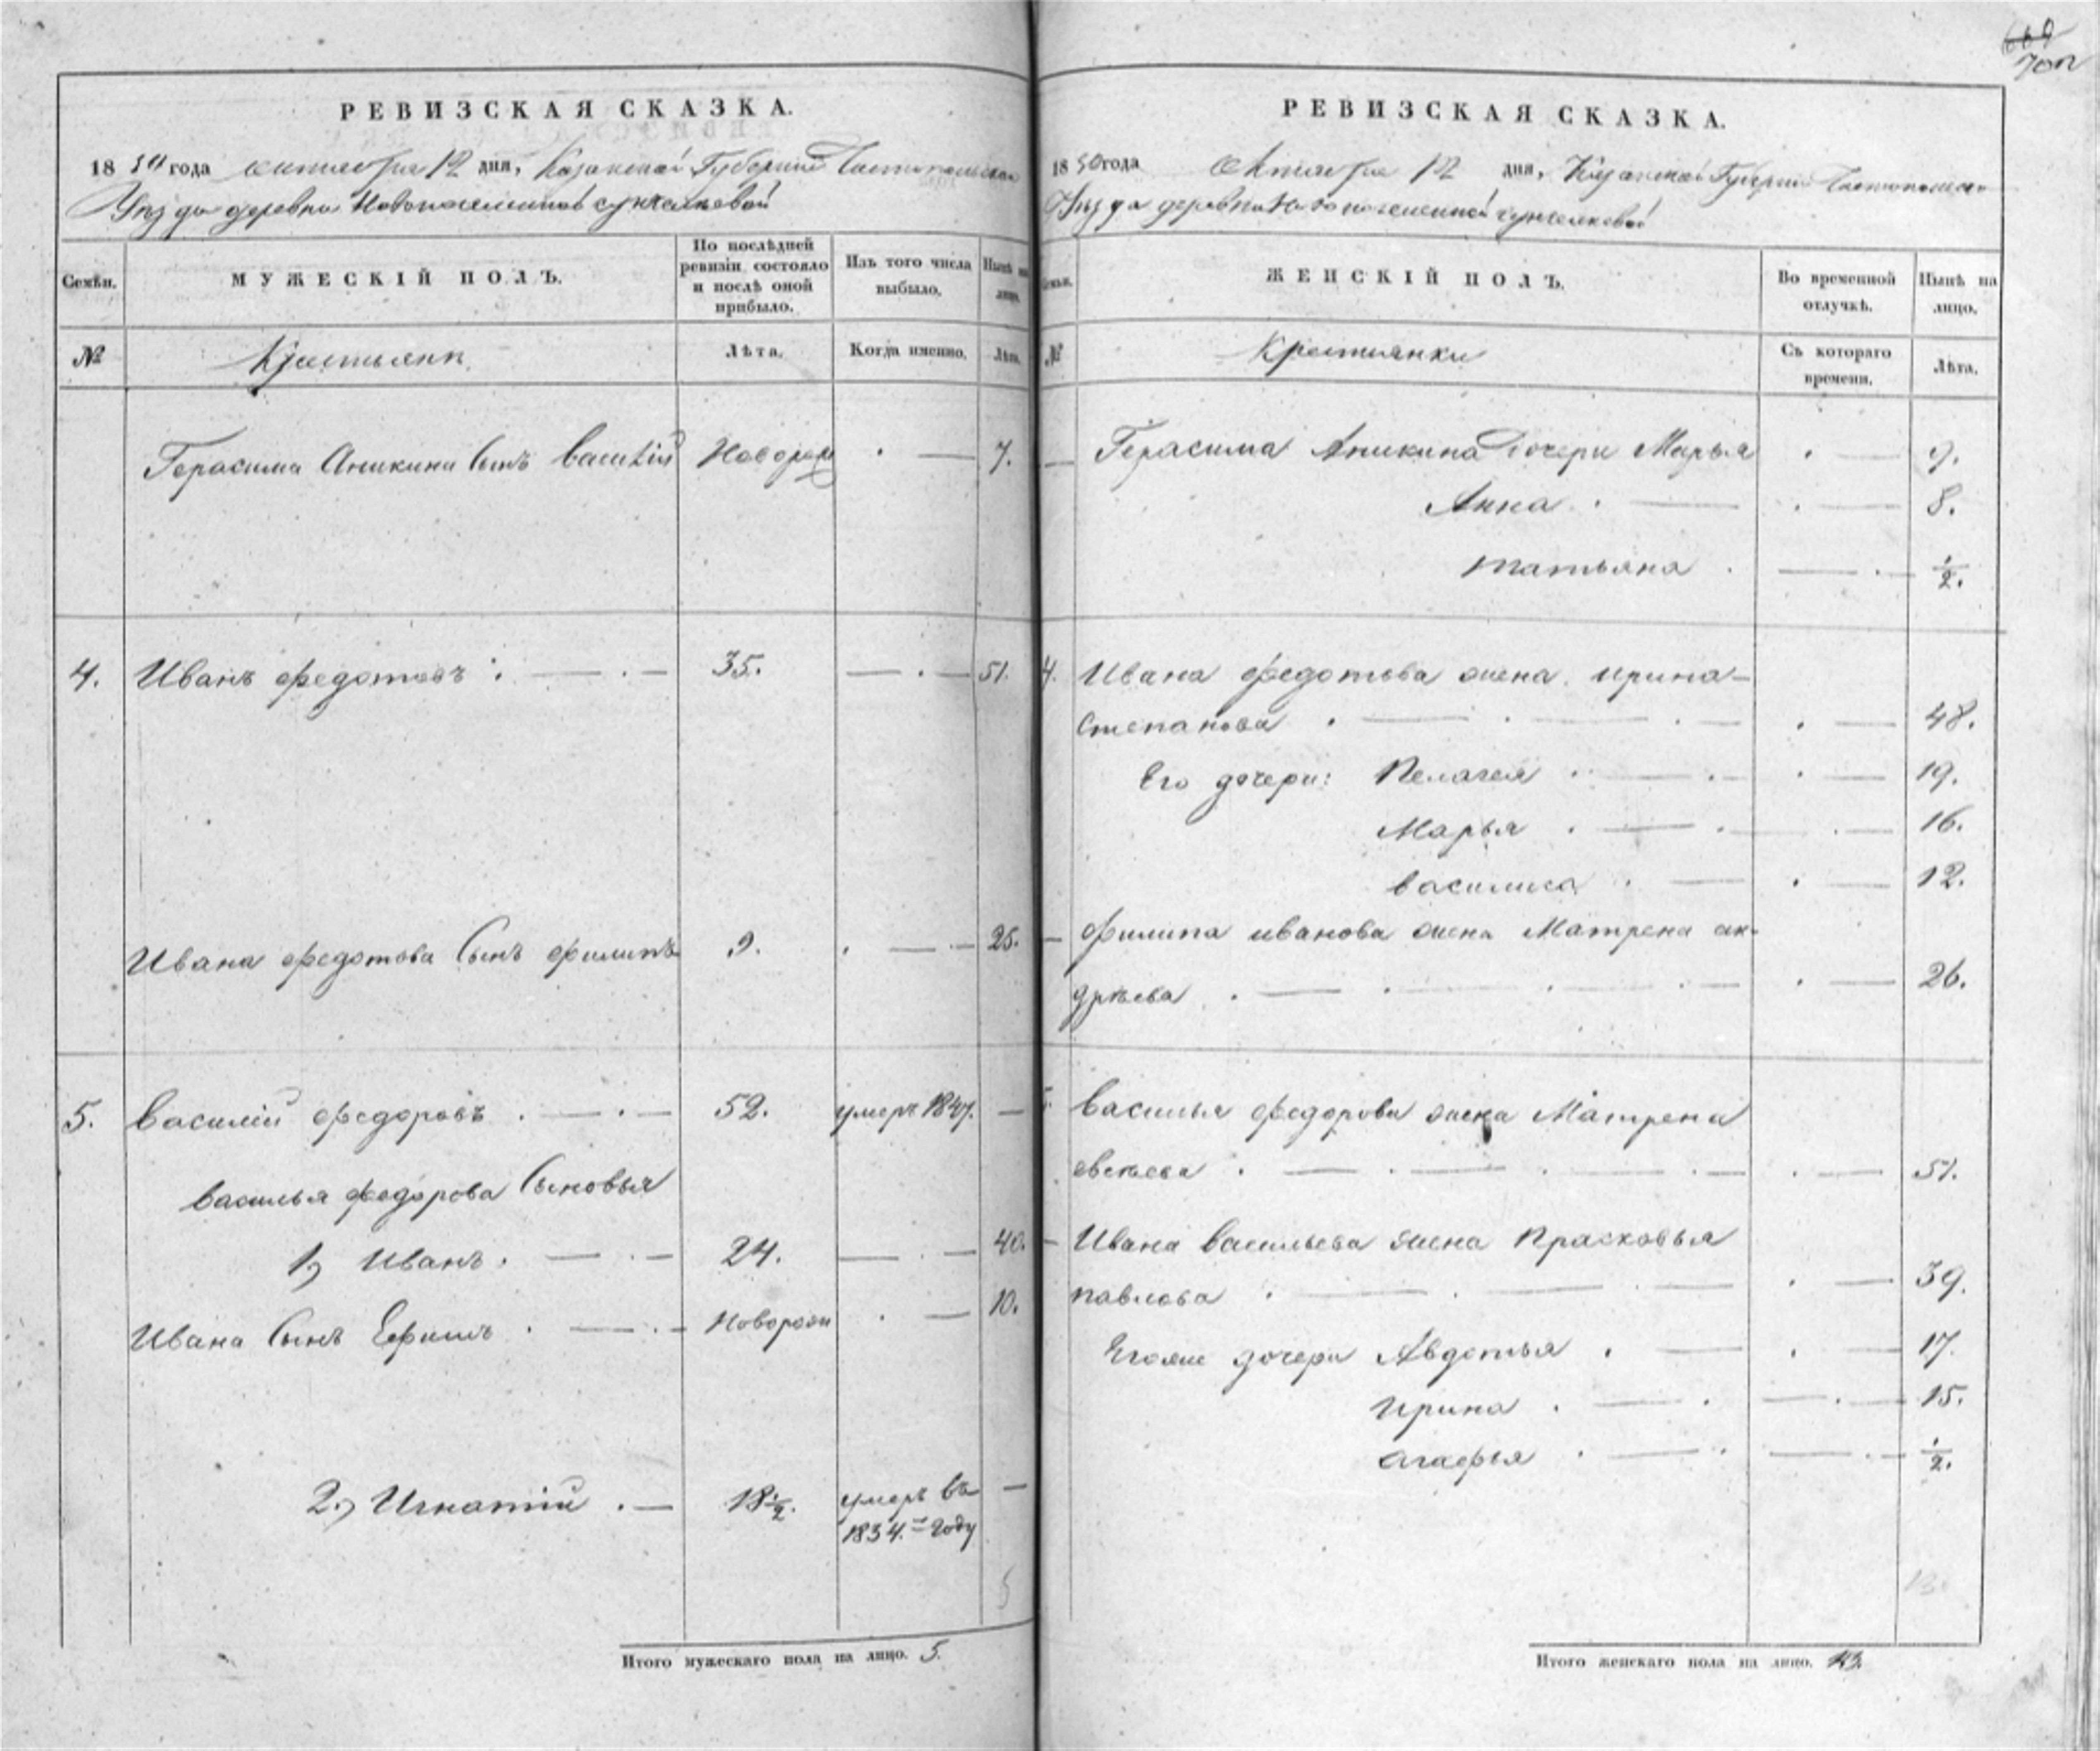 РЕВИЗСКАЯ СКАЗКА.
1850 года октября 12 дня, Казанской Губерніи Чистопольскаго
Уезда деревни Новопоселенной
Семьи. МУЖЕСКІЙ ПОЛЪ. По послѣдней ревизіи состояло и послѣ оной прибыло. Изъ того числа выбыло. Нынѣ на лицо.
№ Крестьяни Лѣта. Когда именно. Лѣта.
Герасима Аникина Сынъ Василій Новорож 7.
4. Иванъ федотовъ 35. 51.
Ивана федотова Сынъ филипъ 9. 25.
5. Василій федоровъ 52. умеръ 1847. —
Василья федорова Сыновья
1) Иванъ 24. 40.
Ивана Сынъ Ефимъ Новорож 10.
2) Игнатій 18½. умеръ въ —
1834.м году
5
Итого мужескаго пола на лицо. 5.
700
РЕВИЗСКАЯ СКАЗКА.
1850 года Октября 12 дня, Казанской Губерніи Чистопольскаго
Уезда деревни Новопоселенной
Семьи. ЖЕНСКІЙ ПОЛЪ. Во временной отлучкѣ. Нынѣ на лицо.
№ Крестьянки Съ котораго времени. Лѣта.
— Герасима Аникина Дочери Марья 9.
Анна 8.
татьяна ½.
4. Ивана федотова жена ирина
Степанова 48.
Его дочери: Пелагея 19.
Марья 16.
василиса 12.
— филипа иванова жена Матрена ан-
дрѣева 26.
5. Василья федорова жена Матрена
евсѣева 51.
— Ивана васильева жена Прасковья
павлова 39.
Егоже дочери Авдотья 17.
Ирина 15.
агафья ½.
13
Итого женскаго пола на лицо. 13.